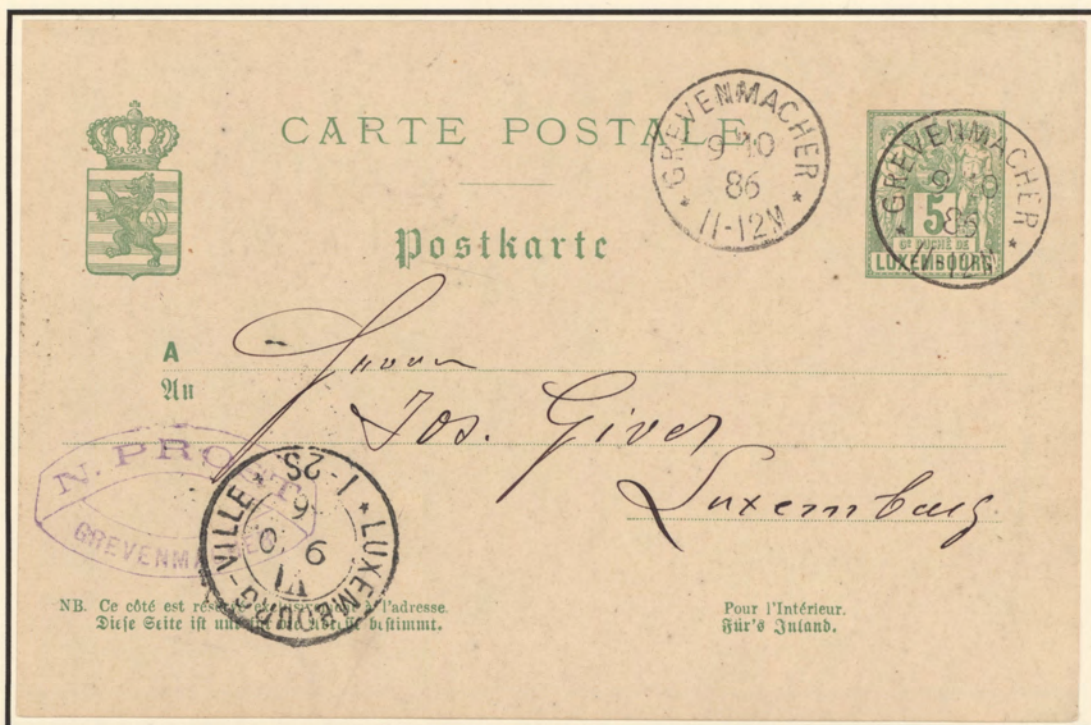 CARTE POSTALE
Postkarte
GREVENMACHER
9-10
86
11-12M
GREVENMACHER
86
5
Gᴰ DUCHÉ DE
LUXEMBOURG
A
An
Herrn
Jos. Giver
Luxemburg
N. PROST
GREVENMA
LUXEMBOURG-VILLE
1-2S
NB. Ce côté est réservé exclusivement à l'adresse.
Diese Seite ist nur für die Adresse bestimmt.
Pour l'Intérieur.
Für's Inland.